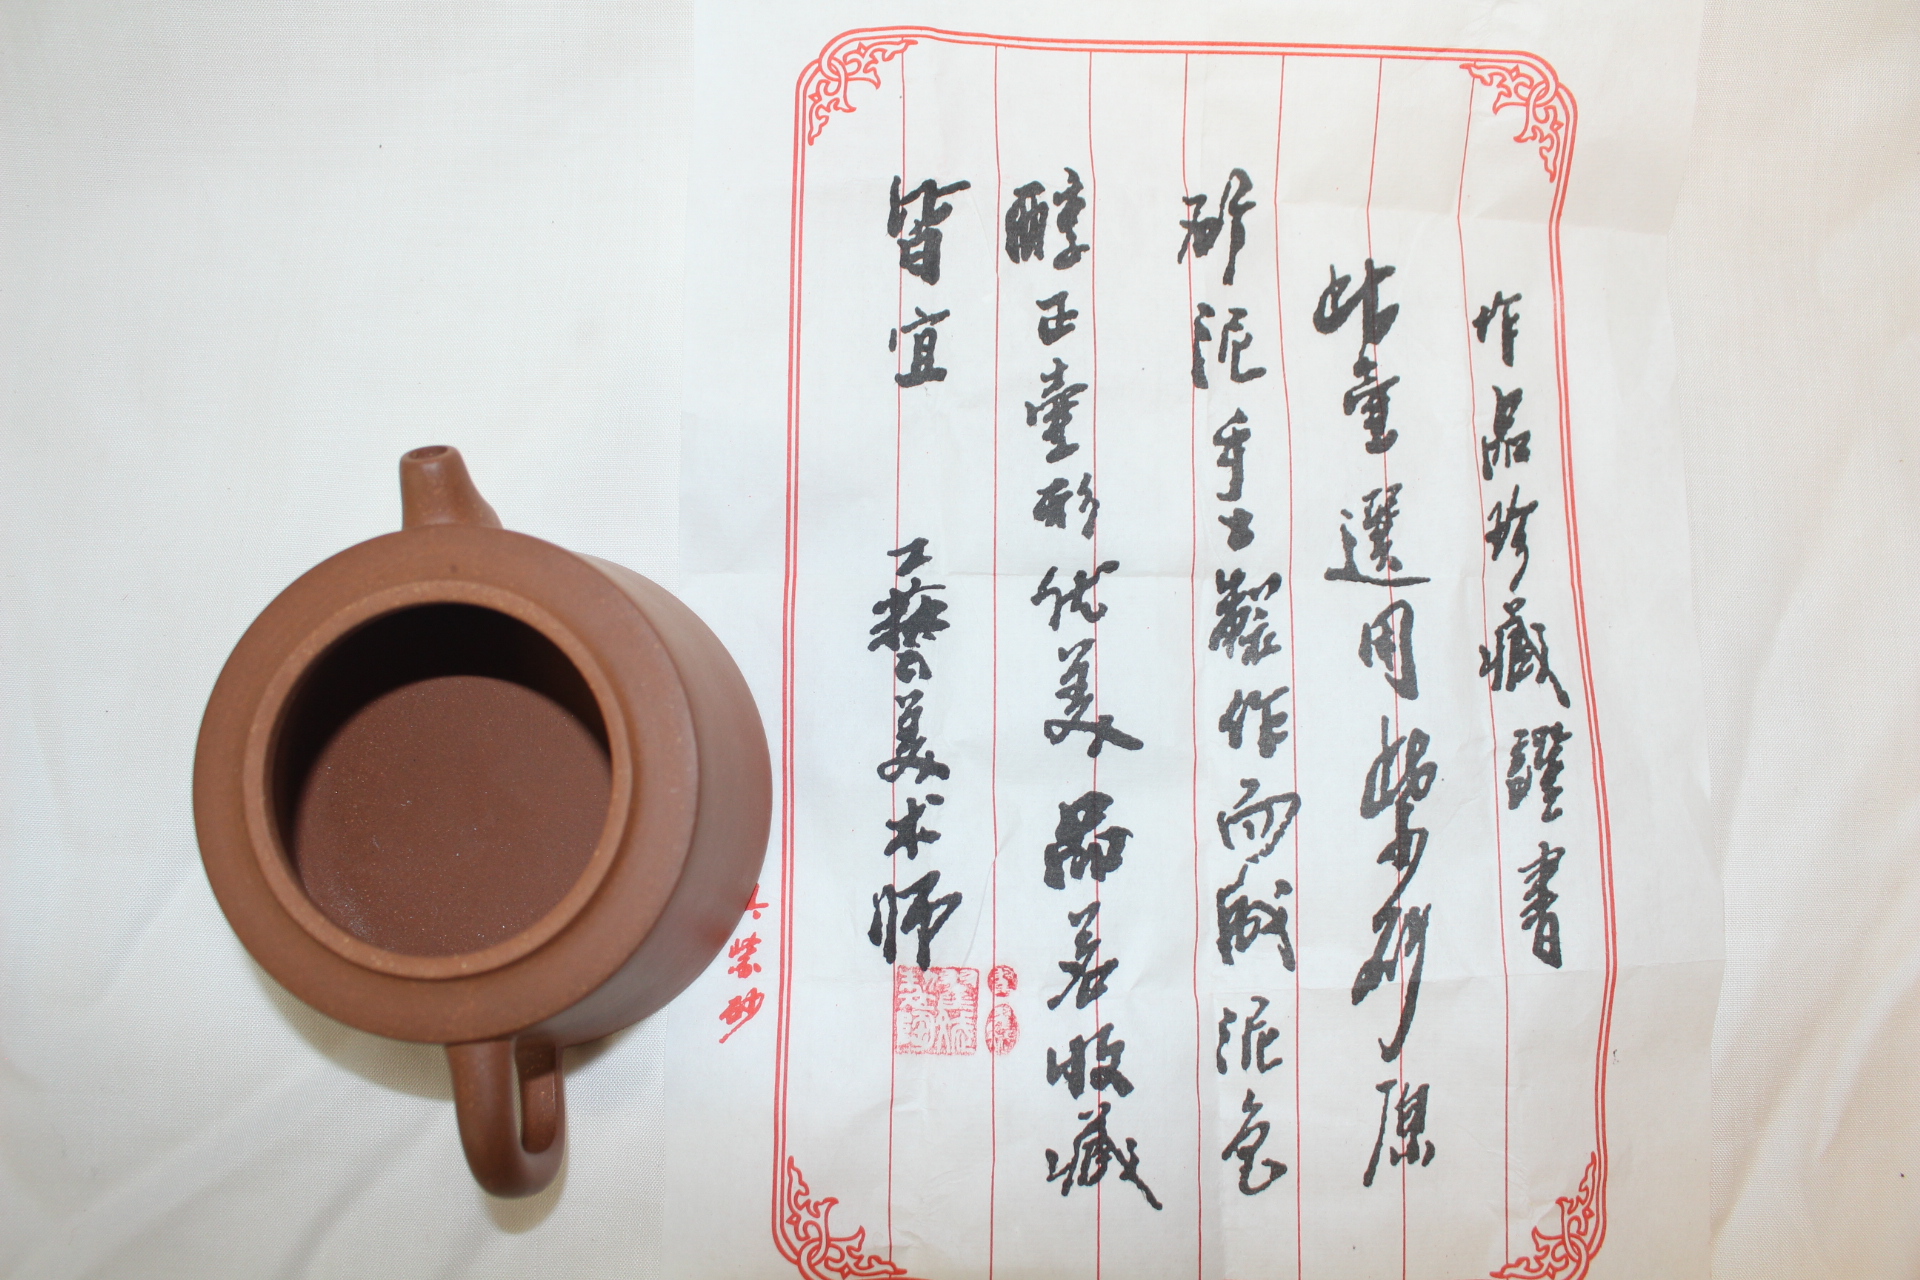 作品珍藏證書
此壷選用紫砂原
砂泥手工製作而成泥色
醇正壷形优美品茗收藏
皆宜 工藝美术师
紫砂